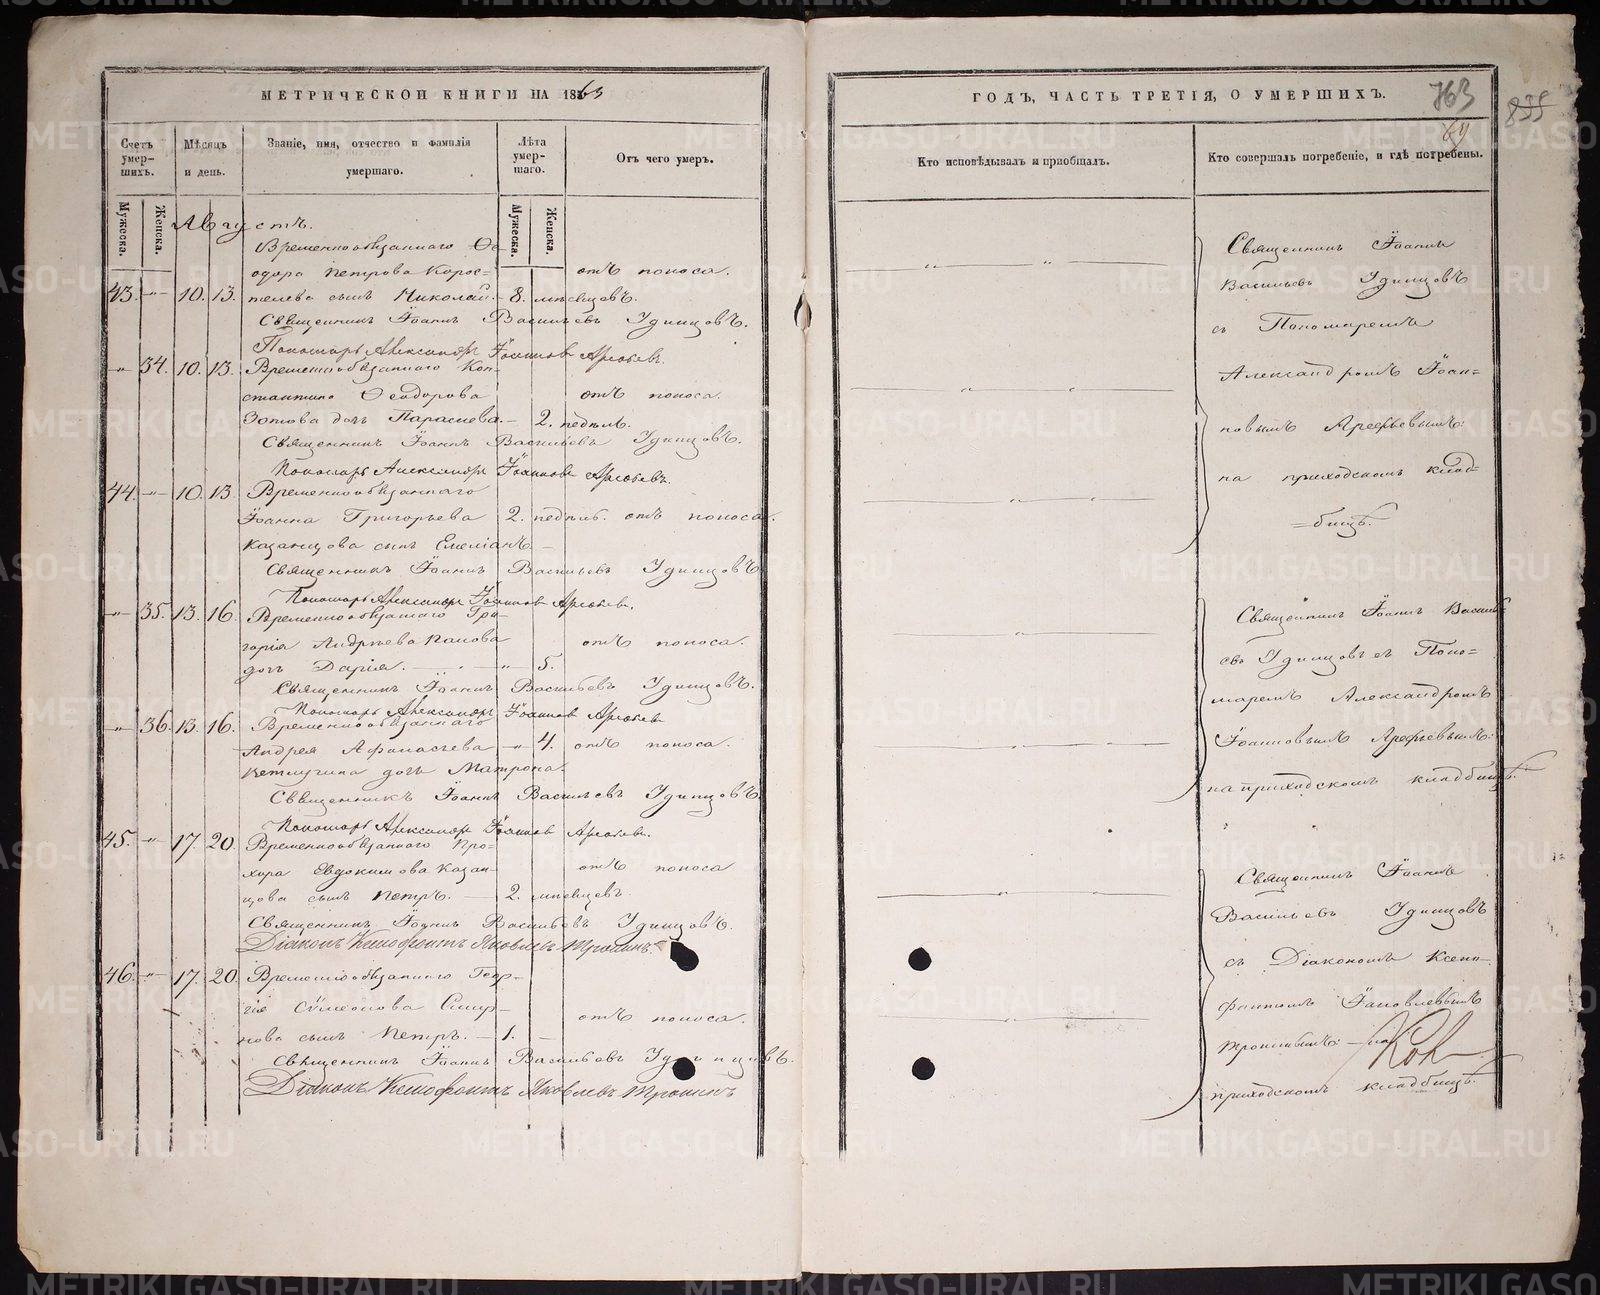 МЕТРИЧЕСКОЙ КНИГИ НА 1863
Счетъ умер-шихъ.
Мѣсяцъ и день.
Званіе, имя, отчество и фамилія умершаго.
Лѣта умер-шаго.
Отъ чего умеръ.
Мужеска.
Женска.
Мужеска.
Женска.
Августъ.
Временнообязаннаго Ѳе-
одора Петрова Корос= отъ поноса.
43. -"- 10. 13. телева сынъ Николай. - 8. мѣсяцовъ.
Священникъ Іоаннъ Васильевъ Удинцовъ.
Пономарь Александръ Іоанновъ Арефьевъ.
-"- 34. 10. 13. Временнообязаннаго Кон-
стантина Ѳеодорова отъ поноса.
Зотова дочь Параскева. - 2. недѣль.
Священникъ Іоаннъ Васильевъ Удинцовъ.
Пономарь Александръ Іоанновъ Арефьевъ.
44. -"- 10. 13. Временнообязаннаго
Іоанна Григорьева 2. недѣль. отъ поноса.
Казанцова сынъ Емеліанъ -
Священникъ Іоаннъ Васильевъ Удинцовъ
Пономарь Александръ Іоанновъ Арефьевъ.
-"- 35. 13. 16. Временнообязаннаго Гри-
горія Андреева Панова отъ поноса.
дочь Дарія. - " - 5.
Священникъ Іоаннъ Васильевъ Удинцовъ.
Пономарь Александръ Іоанновъ Арефьевъ
-"- 36. 13. 16. Временнообязаннаго
Андрея Афанасьева " 4. отъ поноса.
дочь Матрона.
Священникъ Іоаннъ Васильевъ Удинцовъ.
Пономарь Александръ Іоанновъ Арефьевъ.
45. -"- 17. 20. Временнообязаннаго Про-
хора Евдокимова Казан- отъ поноса
цова сынъ Петръ. - 2. мѣсяцевъ
Священникъ Іоаннъ Васильевъ Удинцовъ.
Діаконъ Ксенофонтъ Яковлевъ Тронинъ.
46. -"- 17. 20. Временнообязаннаго Геор-
гія Сѵмеонова Смир- отъ поноса.
нова сынъ Петръ. - 1. -
Священникъ Іоаннъ Васильевъ Удинцовъ.
Діаконъ Ксенофонтъ Яковлевъ Тронинъ
ГОДЪ, ЧАСТЬ ТРЕТІЯ, О УМЕРШИХЪ.
763
835
Кто исповѣдывалъ и пріобщалъ.
Кто совершалъ погребеніе, и гдѣ погребены.
Священникъ Іоаннъ
Васильевъ Удинцовъ
съ Пономаремъ
Александромъ Іоан=
новымъ Арефьевымъ:
на приходскомъ клад=
=бищѣ.
Священникъ Іоаннъ Василь=
евъ Удинцовъ съ Поно=
маремъ Александромъ
Іоанновымъ Арефьевымъ:
на приходскомъ кладбищѣ.
Священникъ Іоаннъ
Васильевъ Удинцовъ
съ Діакономъ Ксено-
фонтомъ Іаковлевымъ
Тронинымъ: - на
приходскомъ кладбищѣ.
METRIKI.GASO-URAL.RU